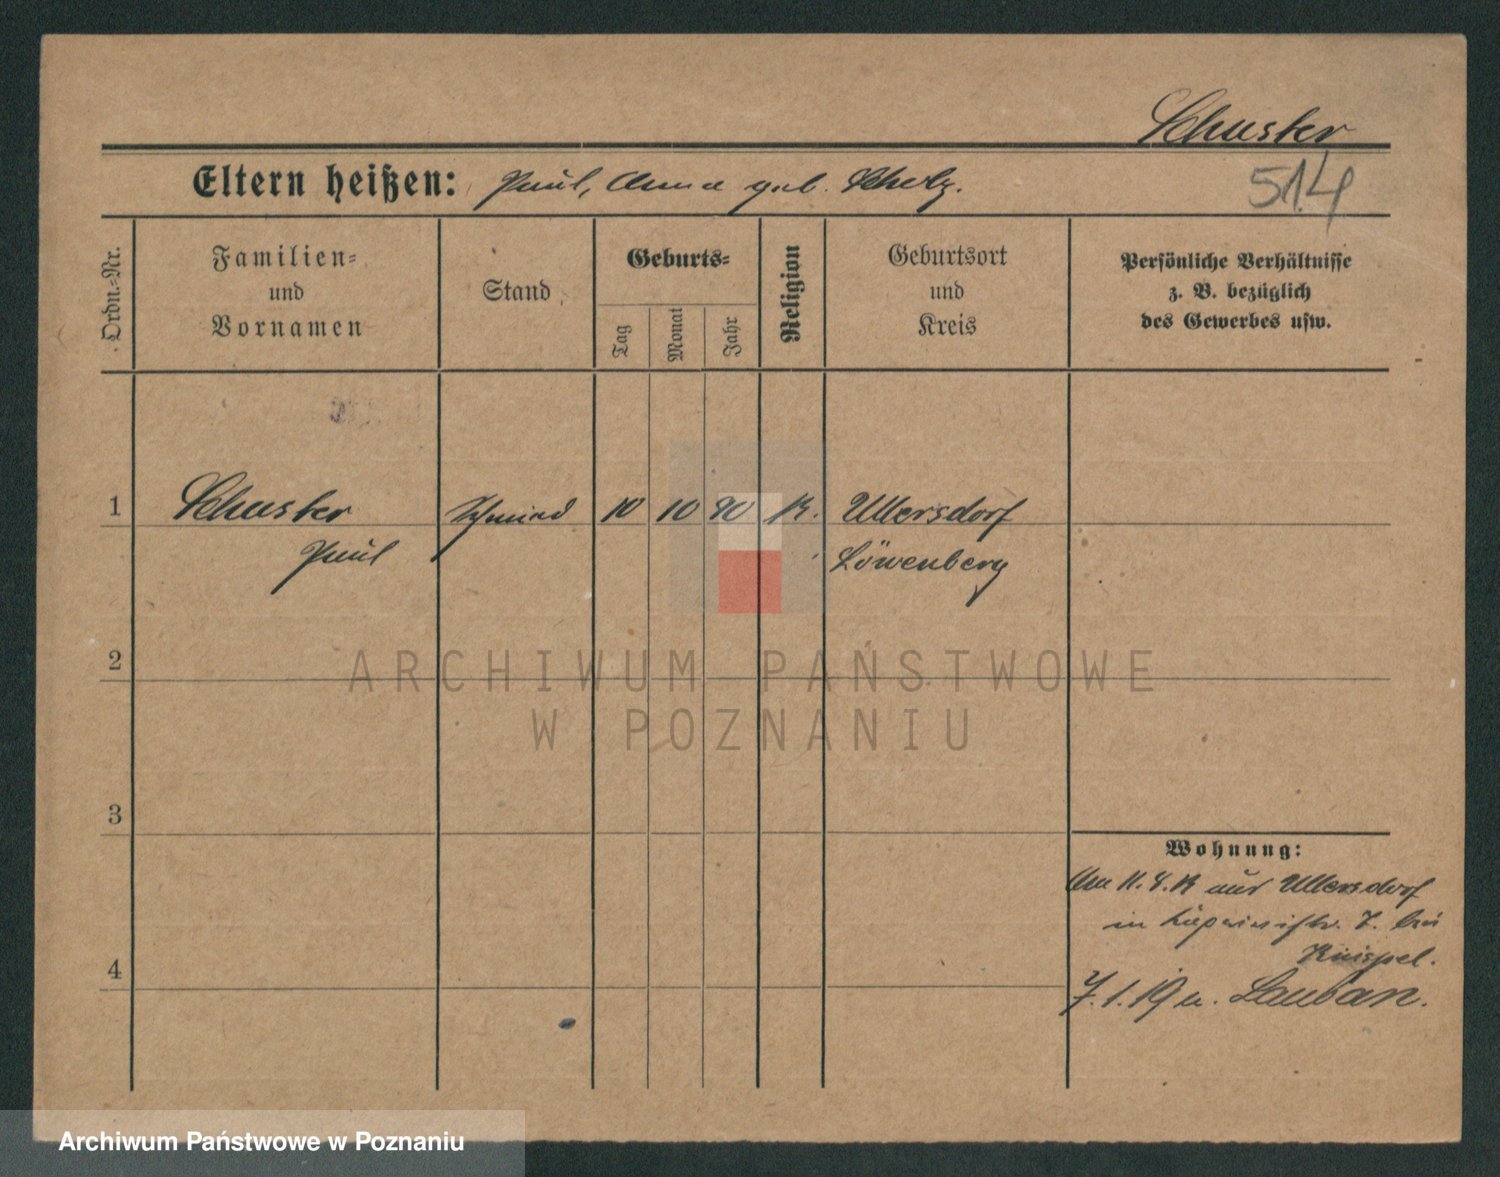 Schuster
Eltern heißen: Paul, Anna geb. Scholz.
514
Ordn.-Nr.
Familien-
und
Vornamen
Stand
Geburts-
Tag
Monat
Jahr
Religion
Geburtsort
und
Kreis
Persönliche Verhältnisse
z. B. bezüglich
des Gewerbes usw.
1 Schuster Schmied 10 10 90 K. Ullersdorf
Paul Löwenberg
2
ARCHIWUM PAŃSTWOWE
W POZNANIU
3
Wohnung:
Am 11. 8. aus Ullersdorf
in 7. bei
4
7.1.19 n. Lauban.
Archiwum Państwowe w Poznaniu